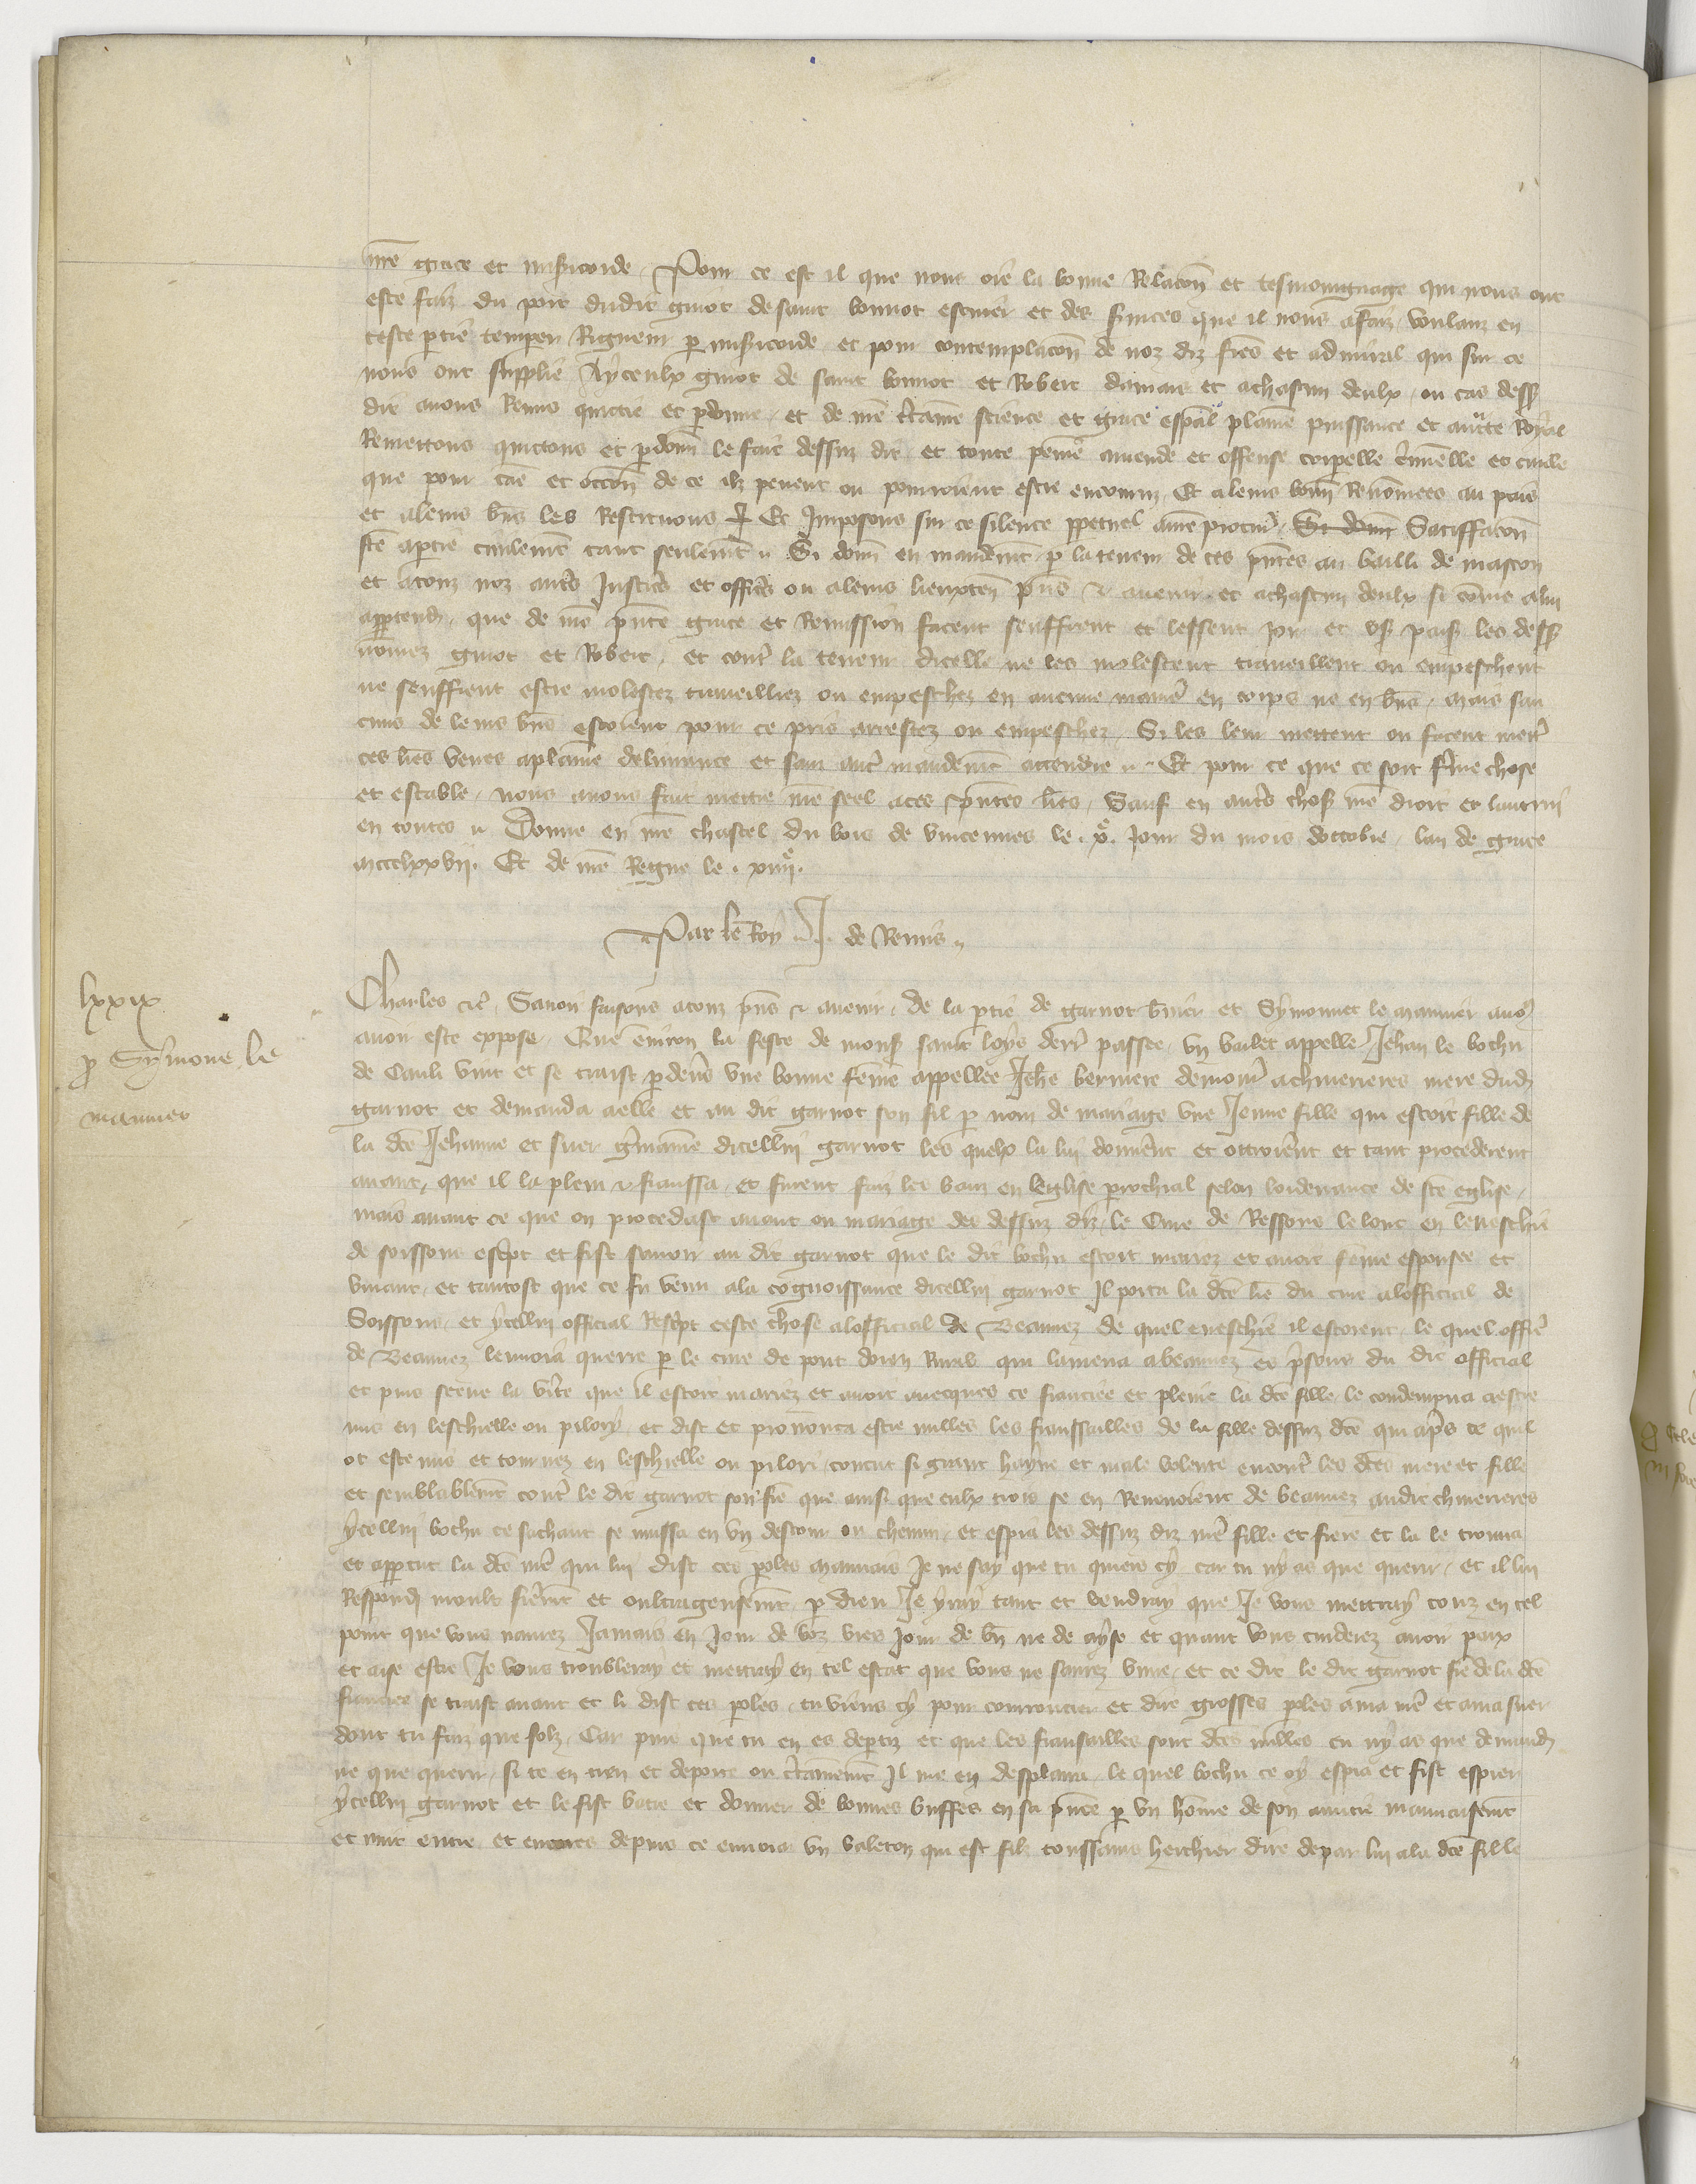 nre grace et misericorde. Pour ce est il que nous oie la bonne Relacon et tesmoingnage qui nous ont
este faiz du port dudit guiot de saint bonnot escuier et des services que il nous a faiz, voulanz en
ceste partie temperer Rigueur par misericorde et pour contemplacon de noz diz freres et admiral qui sur ce
nous ont supplie Aycculx guiot de saint bonnot et Robert damas et a chascun deulx ou cas dessus
dit avons Remis quictie et pardonne, et de nre certaine science et grace especial plaine puissance et auctorite Royal
Remettons quictons et pardonnons le fait dessuz dit et toute peine amende et offense corporelle criminelle et civile
que pour cause et occon de ce ilz pevent ou pourroient estre encouruz. Et a leurs bonnes Renommees au pais
et a leurs biens les Restituons. Et Imposons sur ce silence perpetuel a nre procureur. Satisfacon
fce a partie civilement tant seulement. Si donnons en mandement par la teneur de ces presentes au bailli de mascon
et a touz noz autres Justiciers et officiers ou a leurs lieuxtenans presens et avenir et a chascun deulx si comme a lui
appartendra, que de nre presente grace et Remission facent seuffrent et lessent joir et user paisiblement les dessus
nommez guiot et Robert, et contre la teneur dicelle ne les molestent travaillent ou empeschent
ne seuffrent estre molestez travailliez ou empeschez en aucune maniere en corps ne en biens, mais sau
cuns de leurs biens estoient pour ce pris arrestez ou empeschez, Si les leur mettent ou facent mettre
ces lres veues a plaine delivrance et sanz autre mandement attendre. Et pour ce que ce soit ferme chose
et estable, nous avons fait mettre nre seel a ces presentes lres, Sauf en autres choses nre droit et lautrui
en toutes. Donne en nre chastel du bois de vincennes le .xe. Jour du mois doctobre, lan de grace
mccclxxvii. Et de nre Regne le .xiiiie.
Par le Roy J. de Remis
lxxix
p Symone le
mannier
Charles etc. Savoir faisons a touz presens et avenir, de la partie de garnot et Symonnet le mannier
avoir este expose, Que environ la feste de monsr saint loys derr passee, un vallet appelle Jehan le bochu
de Cauli vint et se traist par devers une bonne femme appellee Jehanne demourant a chivrieres mere dudit
garnot et demanda a elle et au dit garnot son fil par nom de mariage une Jeune fille qui estoit fille de
la dce Jehanne et suer germaine dicellui garnot les quelx la lui donnerent et ottroierent et tant procederent
avant, que il la plevi et fiansa, et furent faiz les bans en leglise parrochial selon lordenance de ste eglise,
mais avant ce que on procedast avant ou mariage des dessuz diz, le Cure de Ressons le lonc en leveschie
de soissons escript et fist savoir au dit garnot que le dit bochu estoit mariez et avoit feme espousee et
vivant, et tantost que ce fu venu a la cognoissance dicellui garnot Il porta la dce lre du cure a lofficial de
Soissons, et ycellui official Rescript ceste chose a lofficial de Beauvez de quel eveschie il estoient, le quel official
de Beauvez lenvoia querre par le cure de pont doien Rural qui lamena a beauvez es prisons du dit official
et puis sceue la verite que il estoit mariez et avoit avecques ce fianciee et plevie la dce fille le condempna a estre
mis en leschielle ou pilory, et dist et prononca estre nulles les fiansailles de la fille dessuz dce qui apres ce quil
ot este mis et tournez en leschielle ou pilori, concut si grant hayne et male volente encontre les dces mere et fille
et semblablement contre le dit garnot son frere que ainsi que eulx trois se en Revenoient de beauvez audit chivrieres
ycellui bochu ce sachant se mussa en un destour ou chemin, et espia les dessuz diz mere fille et frere et la le trouva
et apperceut la dce mere qui lui dist ces paroles mauvais Je ne say que tu quiers cy car tu ny as que querir, et il lui
Respondi moult fierement et oultrageusement, par dieu Je yray tant et vendray que Je vous mettray touz en tel
point que vous naurez Jamais en Jour de voz vies Jour de bien ne de ayse et quant vous cuiderez avoir paix
et aise estre Je vous troubleray et mettray en tel estat que vous ne saurez vivre, et ce dit le dit garnot frere de la dce
fiancee se traist avant et li dist ces paroles, tu viens cy pour courroucier et dire grosses paroles a ma mere et a ma suer
dont tu faiz que folz, Car puis que tu en es departiz et que les fiansailles sont dces nulles tu ny as que demander
ne que querir, si te en tien et deporte ou certainement Il me en desplaira, le quel bochu ce oy espia et fist espier
ycellui garnot et le fist batre et donner de bonnes buffes en sa presence par un homme de son amitie mauvaisement
et et encores depuis ce envoia un valeton qui est filz toussains herchier dire de par lui a la dce fille